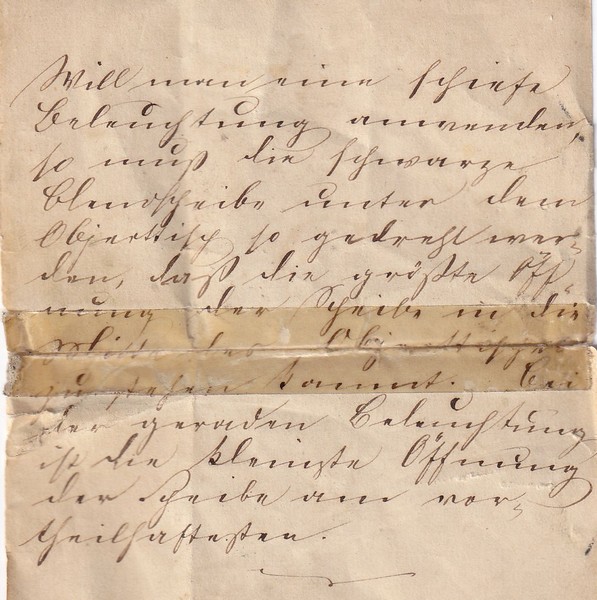 Will man eine schiefe
Beleuchtung anwenden,
so muß die schwarze
Blendscheibe unter dem
Objecttisch so gedreht wer-
den, daß die größte Öff-
nung der Scheibe in die
Mitte des Objecttisches
zu stehen kommt. Bei
der geraden Beleuchtung
ist die kleinste Öffnung
der Scheibe am vor-
theilhaftesten.